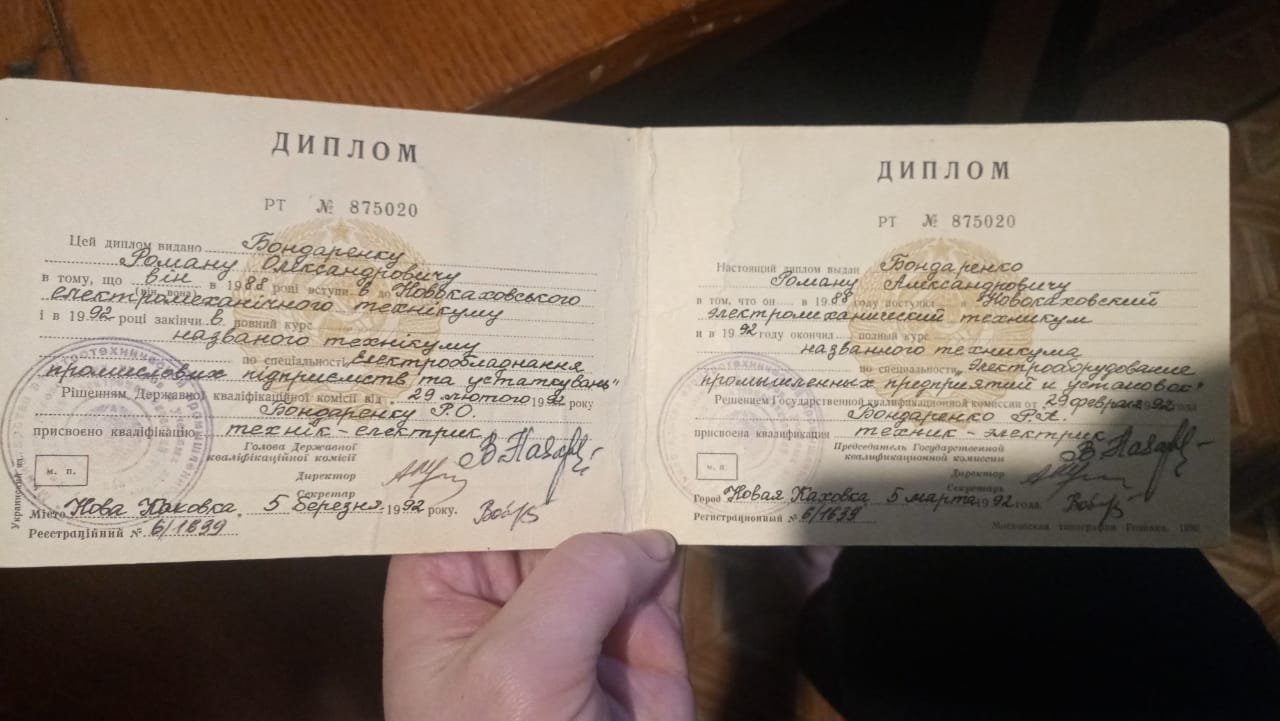 ДИПЛОМ
РТ № 875020
Цей диплом видано Бондаренку
Роману Олександровичу
в тому, що він в 1988 році вступи в до Новокаховського
(він, вона)
електромеханічного технікуму
і в 1992 році закінчи в повний курс
названого технікуму
по спеціальності „Електрообладнання
промислових підприємств та устаткувань"
Рішенням Державної кваліфікаційної комісії від 29 лютого 1992 року
Бондаренку Р.О.
присвоєно кваліфікацію технік-електрик
Голова Державної
кваліфікаційної комісії
Директор
Секретар
м. п.
Місто Нова Каховка, 5 березня 1992 року.
Реєстраційний № 6/1699
ДИПЛОМ
РТ № 875020
Настоящий диплом выдан Бондаренко
Роману Александровичу
в том, что он в 1988 году поступил в Новокаховский
электромеханический техникум
и в 1992 году окончил полный курс
названного техникума
по специальности „Электрооборудование
промышленных предприятий и установок"
Решением Государственной квалификационной комиссии от 29 февраля 1992 года
Бондаренко Р.А.
присвоена квалификация техник-электрик
Председатель Государственной
квалификационной комиссии
Директор
Секретарь
м. п.
Город Новая Каховка 5 марта 1992 года.
Регистрационный № 6/1699
Московская типография Гознака. 1990.